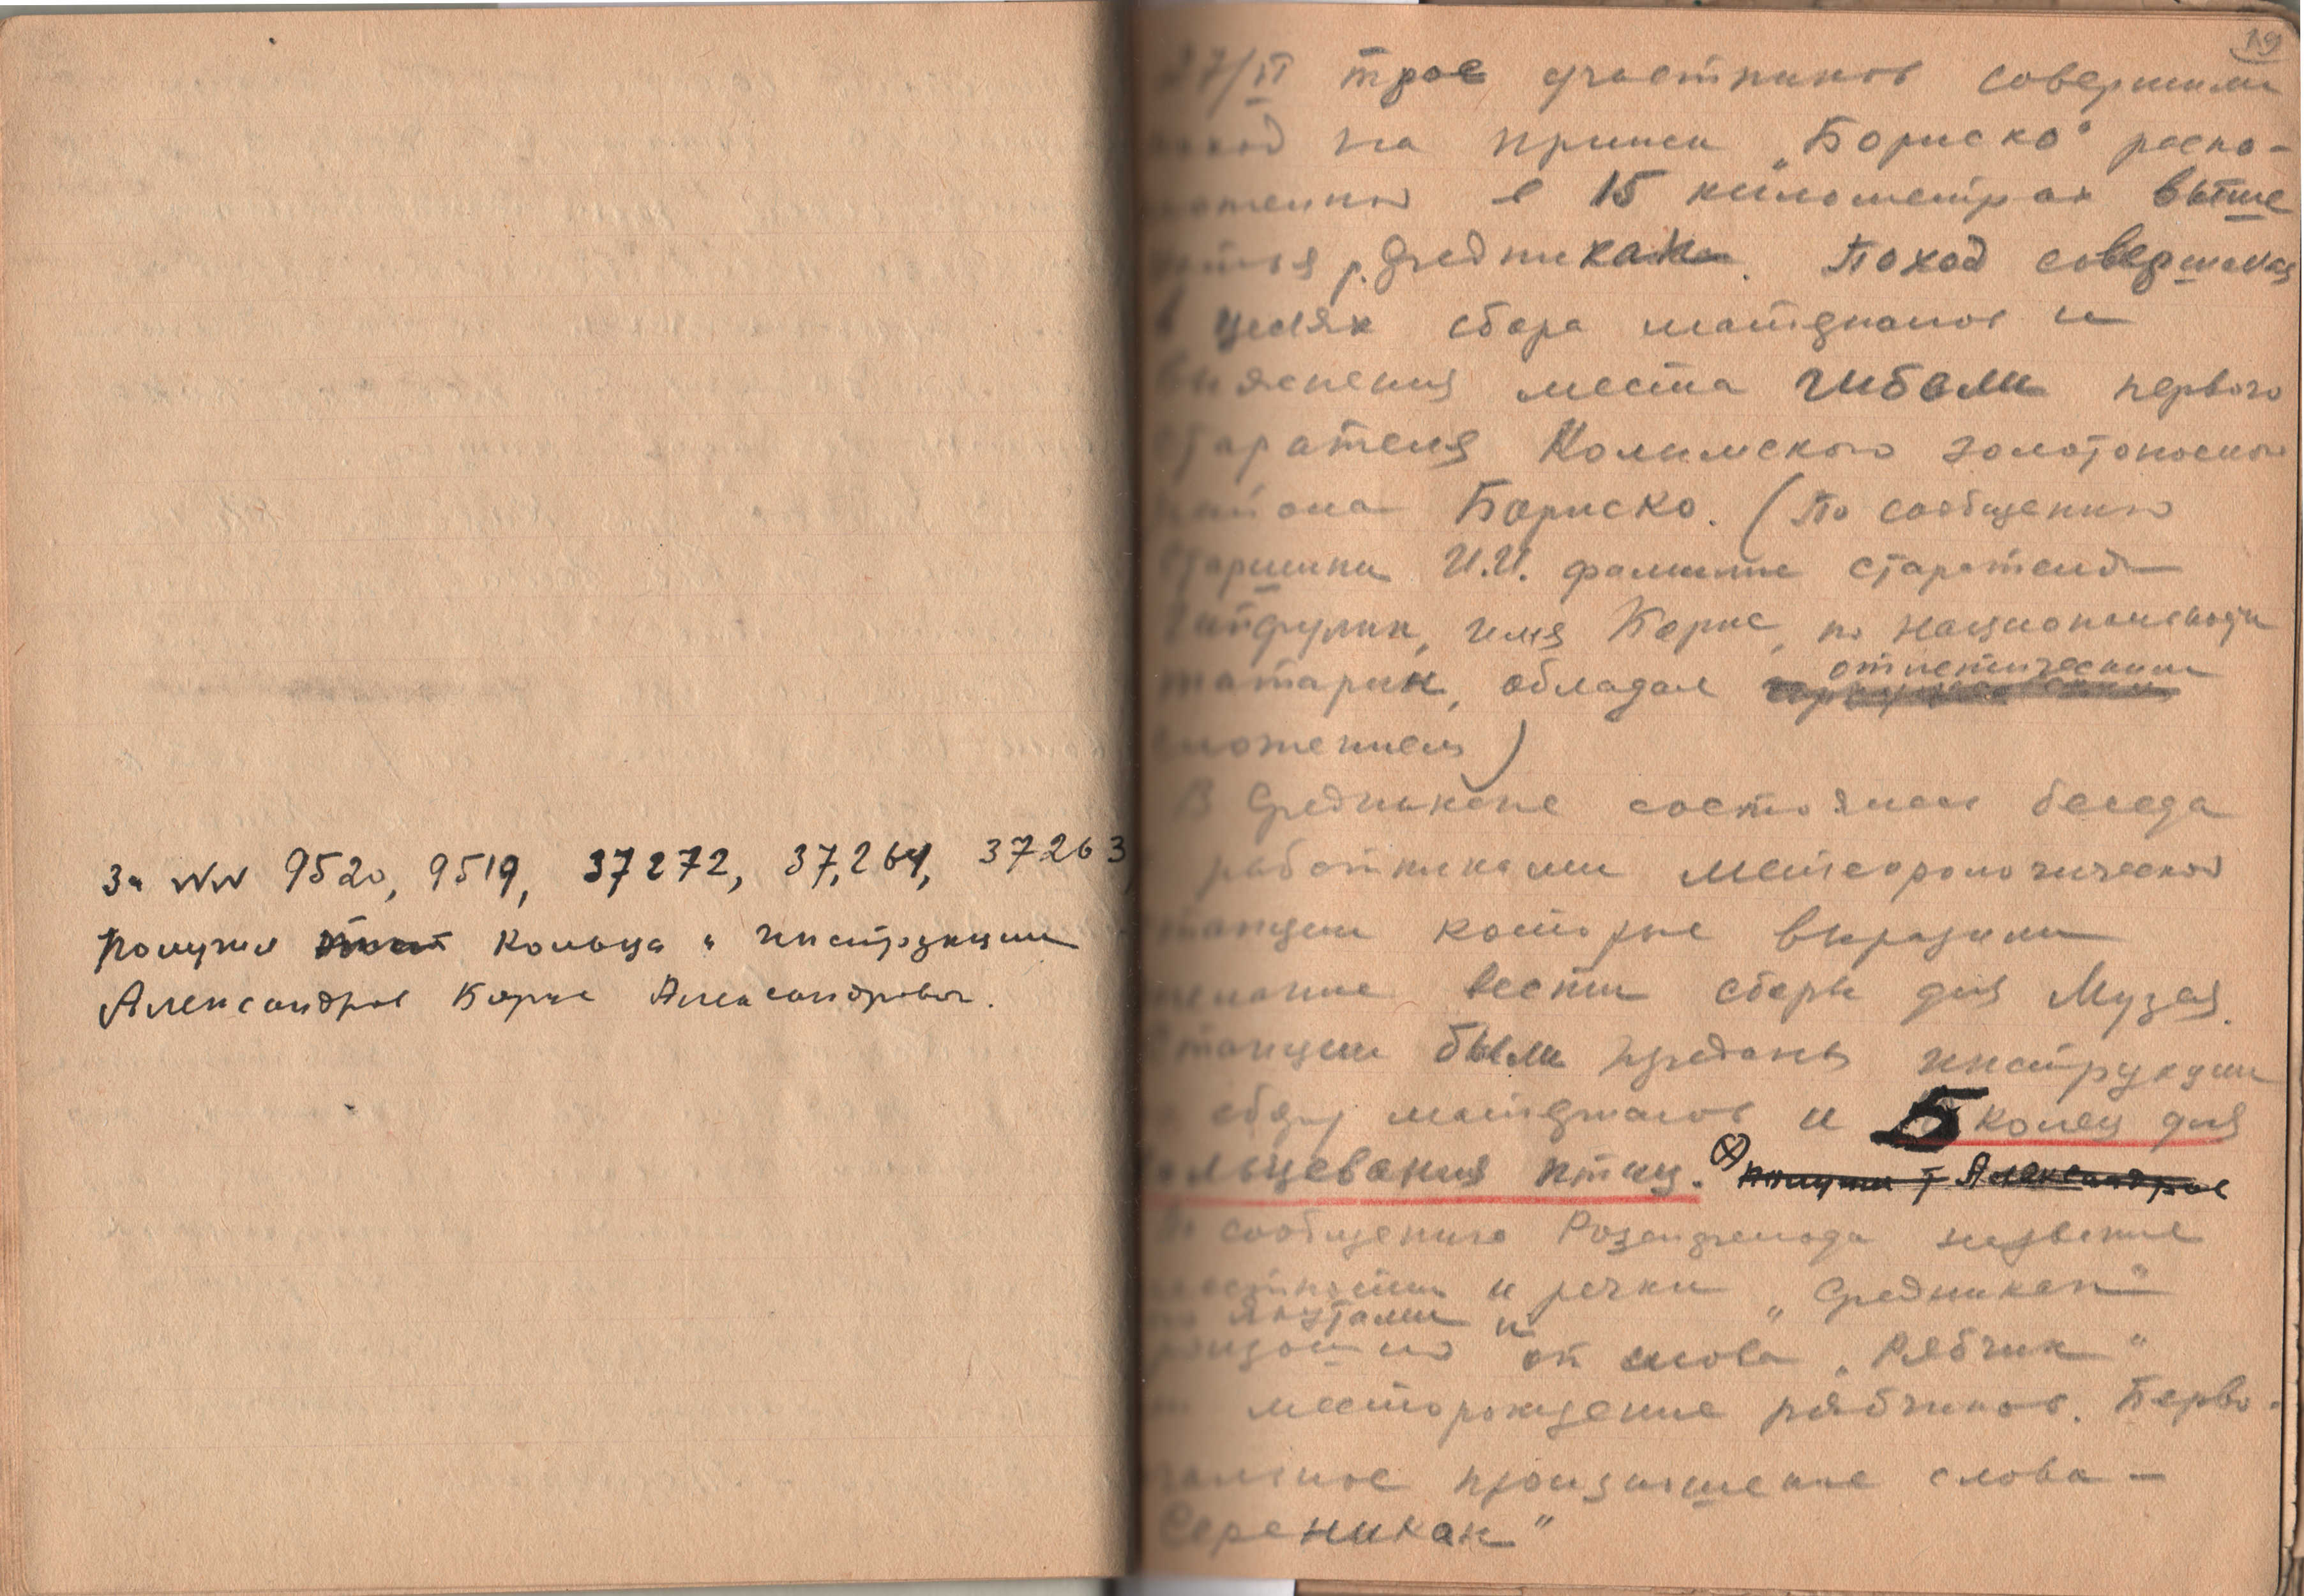 За NN 9520, 9519, 37272, 37,264, 37263,
получил кольца и инструкции
Александров Борис Александрович.
19
27/II трое участников совершили
поход на прииск „Бориско“ распо-
ложенный в 15 километрах выше
устья р. Среднекан. Поход совершался
в целях сбора материалов и
выяснения места гибели первого
старателя Колымского золотоносного
района Бориско. (По сообщению
И.И. фамилие старателя —
Гайфулин, имя Борис, по национальности
татарин, обладал отлетическим
сложением)
В Среднекане состоялась беседа
с работниками метеорологической
станции которые выразили
желание вести сборы для Музея.
Станции были преданы инструкции
по сбору материалов и 5 колец для
кольцевания птиц. получил т Александров
По сообщению Розенфельда название
местности и речки „Среднекан“
якутами и
от слова „Рябчик“
месторождение рябчиков. Перво-
начальное произношение слова —
Середникан“